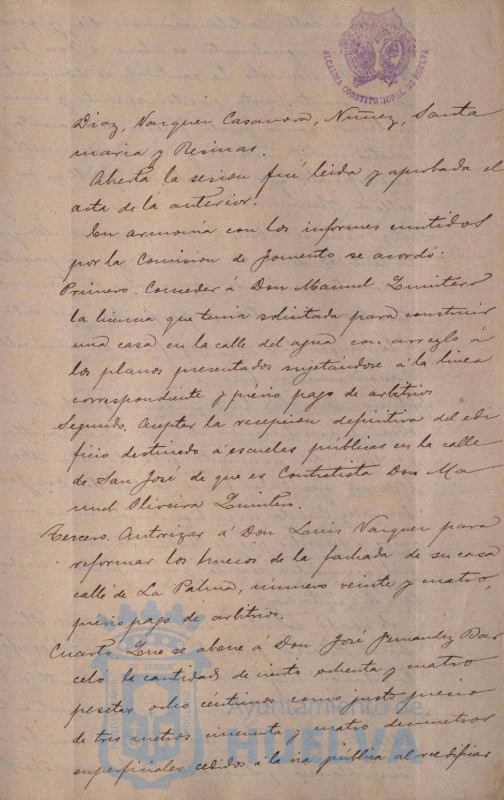 ALCALDIA CONSTITUCIONAL DE HUELVA
Diaz, Vazquez Casanova, Nuñez, Santa
maria y Resinas.
Abierta la sesion fué leida y aprobada el
acta de la anterior.
En armonia con los informes emitidos
por la Comision de Fomento se acordó:
Primero. Conceder á Don Manuel Quintero
la licencia que tenia solicitada para construir
una casa en la calle del agua con arreglo á
los planos presentados sujetándose á la linea
correspondiente y prévio pago de arbitrios
Segundo. Aceptar la recepcion definitiva del edi
ficio destinado á escuelas públicas en la calle
de San José de que es Contratista Don Ma
nuel Oliveira Quintero.
Tercero. Autorizar á Don Luis Vazquez para
reformar los huecos de la fachada de su casa
calle de La Palma, número veinte y cuatro,
prévio pago de arbitrios.
Cuarto Que se abone á Don José Fernandez Bar
celó la cantidad de ciento ochenta y cuatro
pesetas ocho céntimos como justo precio
de tres metros cincuenta y cuatro decimetros
superficiales cedidos á la via pública al reedificar
Ayuntamiento de
HUELVA